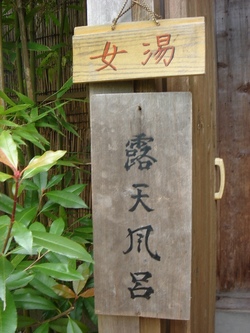 女湯
露天風呂